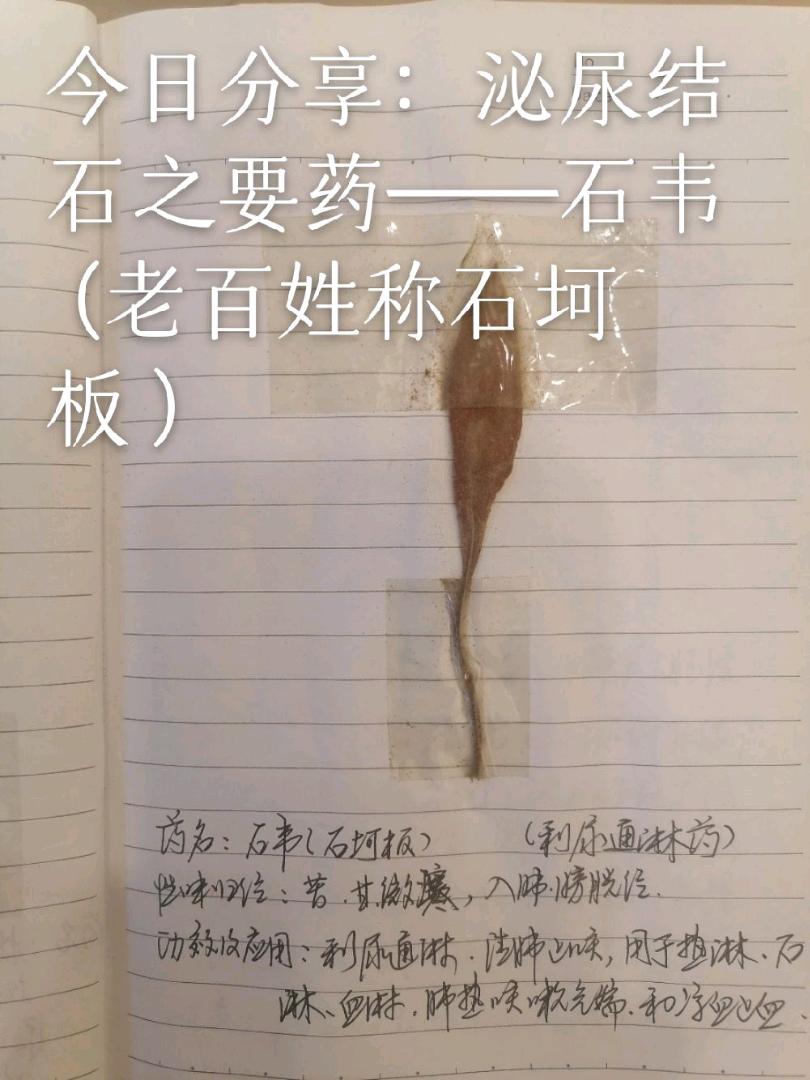 今日分享：泌尿结
石之要药——石韦
（老百姓称石坷
板）
药名：石韦（石坷板） （利尿通淋药）
性味归经：苦.甘.微寒，入肺.膀胱经.
功效及应用：利尿通淋.清肺止咳，用于热淋、石
淋、血淋.肺热咳嗽气喘.和凉血止血.